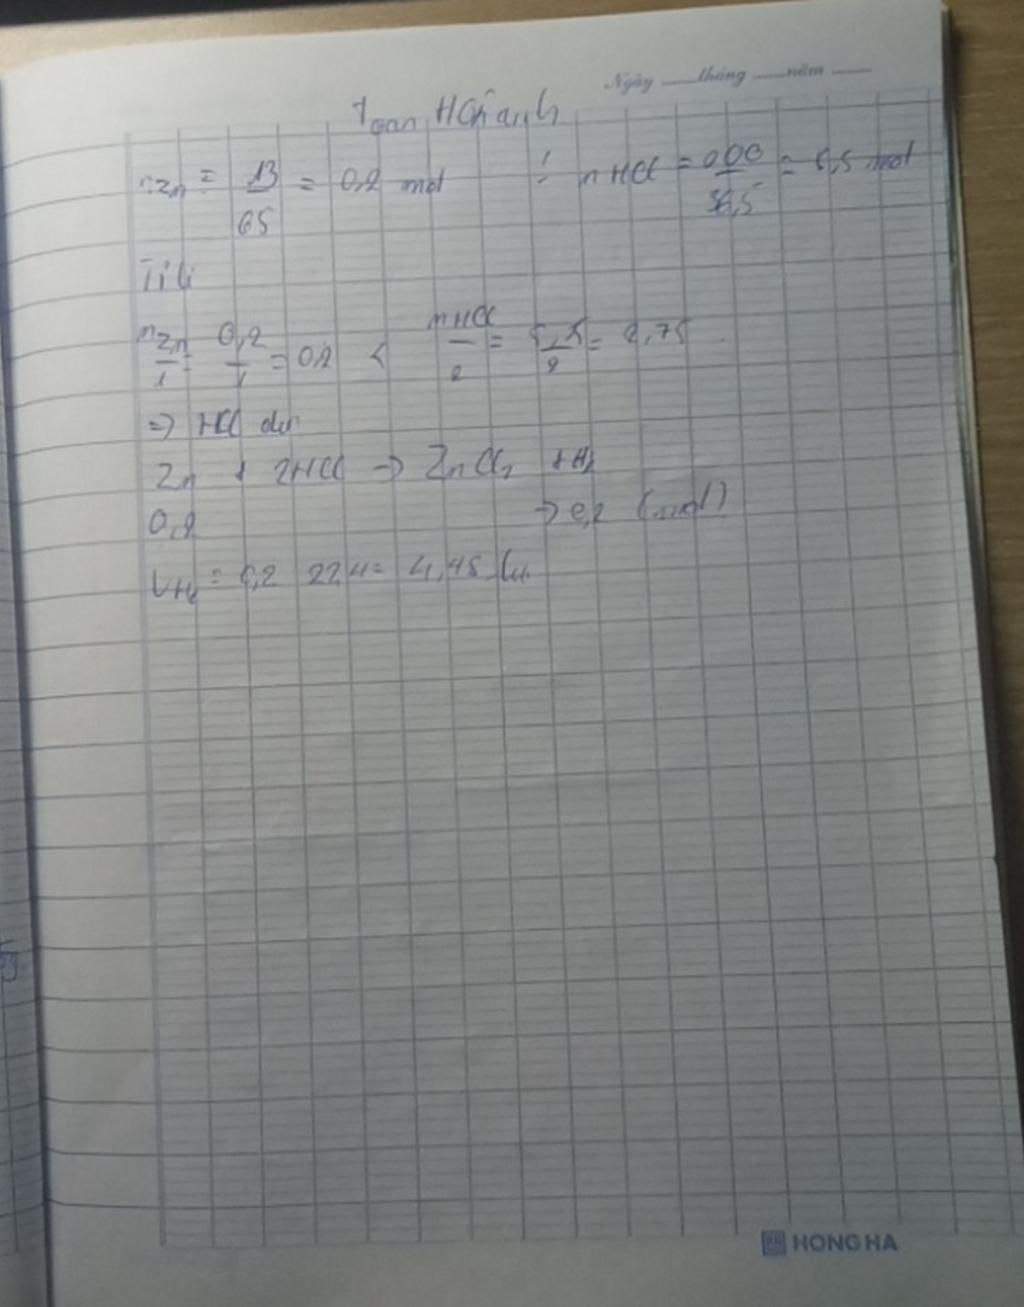 Ngày tháng năm
nZn = 13/65 = 0,2 mol ; nHCl = 200/36,5 = 5,5 mol
Tỉ lệ
nZn/1 = 0,2/1 = 0,2 < nHCl/2 = 5,5/2 = 2,75
=> HCl dư
Zn + 2HCl -> ZnCl2 + H2
0,2 -> 0,2 (mol)
VH2 = 0,2 22,4 = 4,48 lít
HONG HA